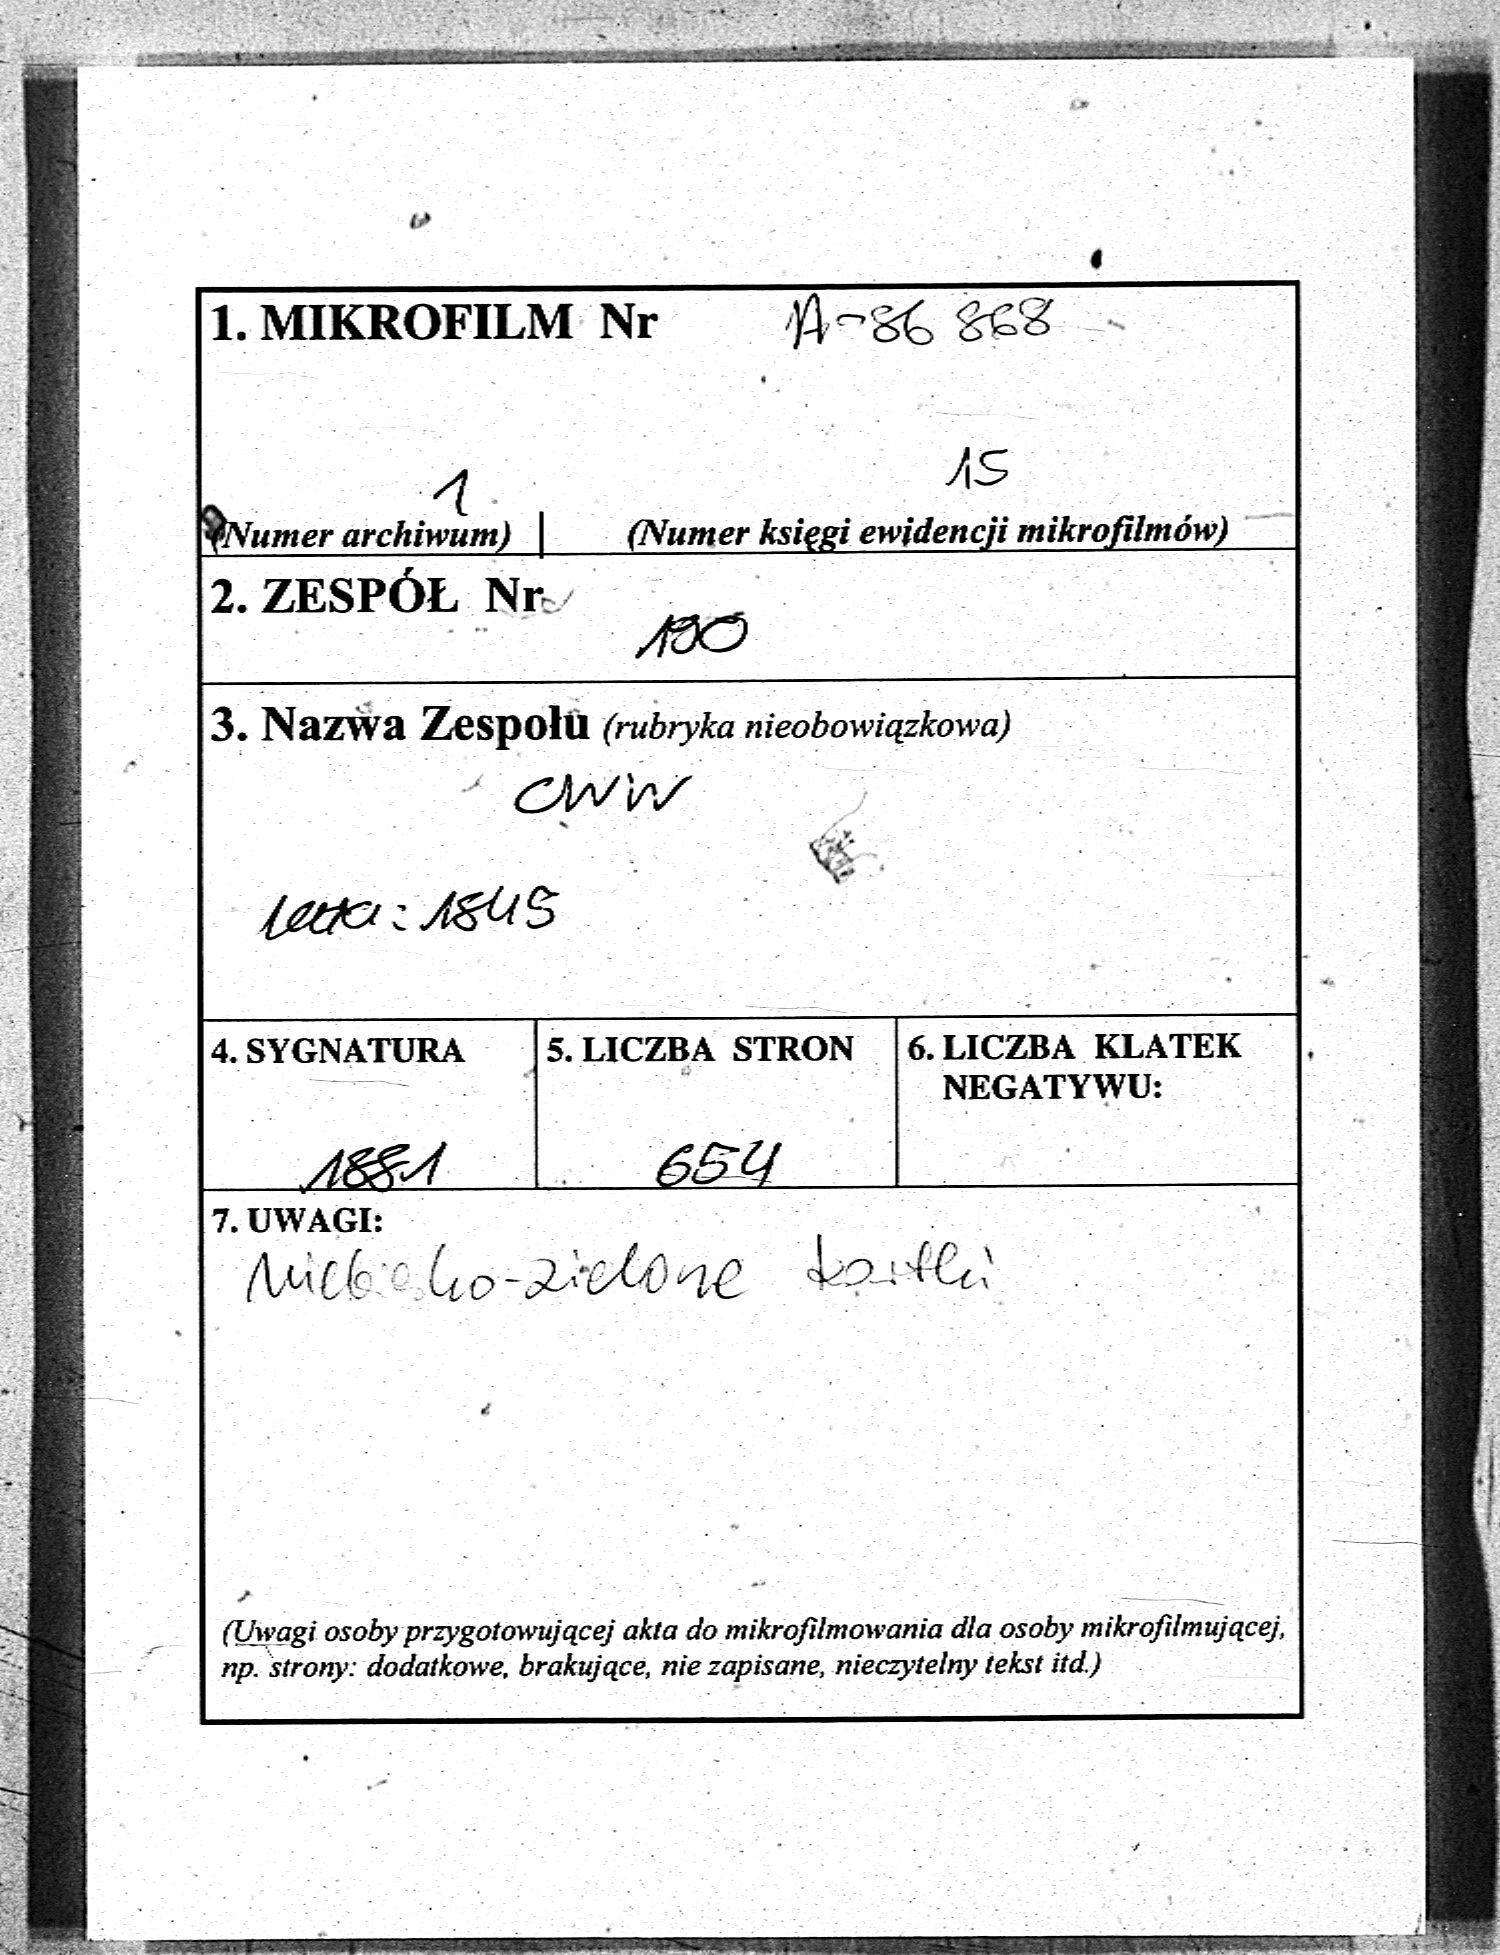 1. MIKROFILM Nr A-86 868
1 15
(Numer archiwum) | (Numer księgi ewidencji mikrofilmów)
2. ZESPÓŁ Nr
190
3. Nazwa Zespołu (rubryka nieobowiązkowa)
CWW
lata: 1845
4. SYGNATURA 5. LICZBA STRON 6. LICZBA KLATEK
NEGATYWU:
1881 654
7. UWAGI:
Niebiesko-zielone kartki
(Uwagi osoby przygotowującej akta do mikrofilmowania dla osoby mikrofilmującej,
np. strony: dodatkowe, brakujące, nie zapisane, nieczytelny tekst itd.)